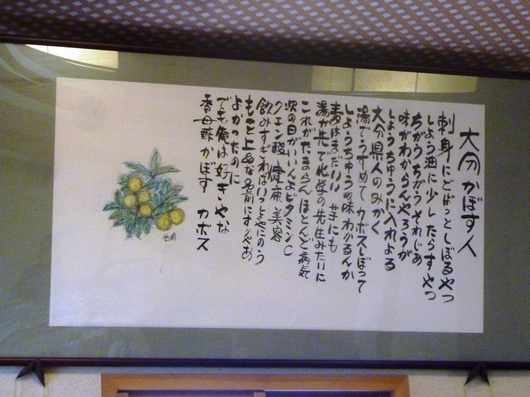 大分かぼす人
刺身にどばっとしぼるやつ
しょう油に少したらすやつ
ちがうちがうそれじゃあ
味がわからんやろうが
しょうちゅうに入れよる
大分県人のみかく
湯でうすめてカボスしぼって
しょうちゅうの味わかるんか
麦はまだいい 芋にも
湯が先で化学の先生みたいに
これがたまらん ほとんど病気
次の日がいいんよビタミンC
クエン酸 健康 美容
飲みすぎればいっしょやにのう
もっと上品な名前にすりゃあ
よかったのに
でも俺は好きやな
香母酢 かぼす カボス